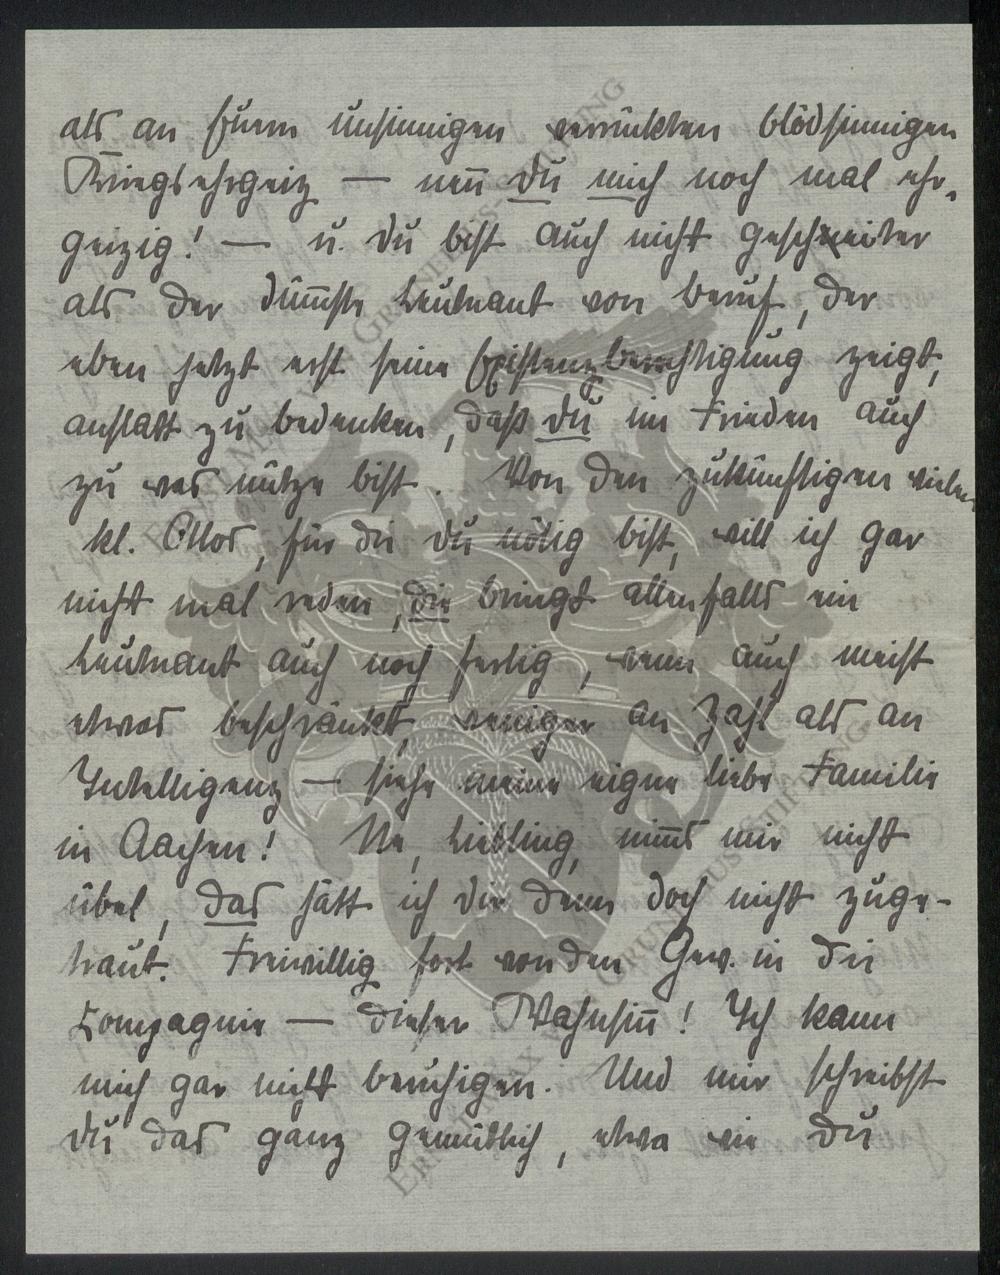 als an Eurem unsinnigen verrückten blödsinnigen
Kriegsehrgeiz — nen̄ Du mich noch mal ehr-
geizig! — u. Du bist auch nicht gescheiter
als der düm̄ste Leutnant von Beruf, der
eben jetzt erst seine Existenzberechtigung zeigt,
anstatt zu bedenken, daß Du im Frieden auch
zu was nütze bist. Von den zukünftigen vielen
kl. Ottos, für die Du nötig bist, will ich gar
nicht mal reden, die bringt allenfalls ein
Leutnant auch noch fertig, wenn auch meist
etwas beschränkt, weniger an Zahl als an
Intelligenz — siehe meine eigne liebe Familie
in Aachen! Ne, Liebling, nim̄s mir nicht
übel, das hätt ich Dir denn doch nicht zuge-
traut. Freiwillig fort von den Gew. in die
Compagnie — dieser Wahnsin̄! Ich kann
mich gar nicht beruhigen. Und mir schreibst
Du das ganz gemütlich, etwa wie Du